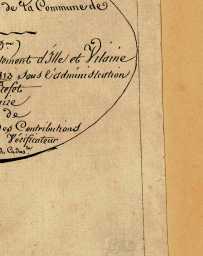 de la Commune de
3me
tement d'Ille et Vilaine
1813 sous l'administration
refet
aire
de
des Contributions
Vérificateur
du Cadas.